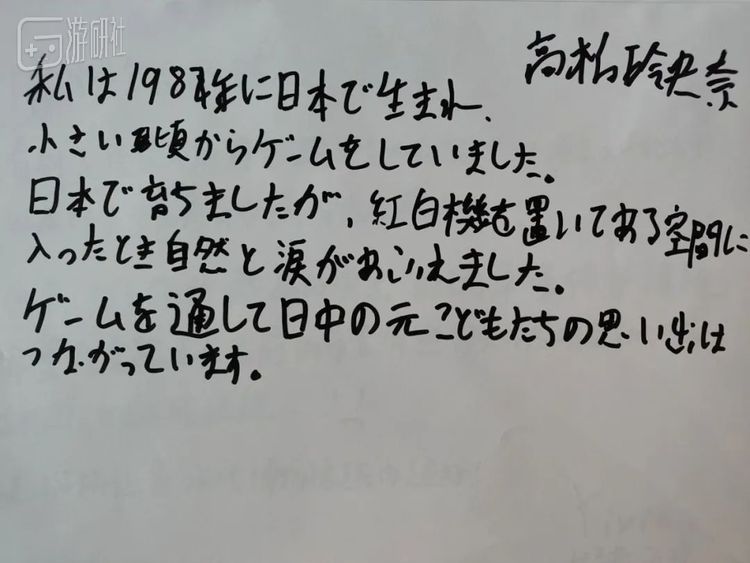 游研社
高松玲央奈
私は1987年に日本で生まれ、
小さい頃からゲームをしていました。
日本で育ちましたが、紅白機を置いてある空間に
入ったとき自然と涙がおぶえました。
ゲームを通して日中の元こどもたちの思い出は
つながっています。